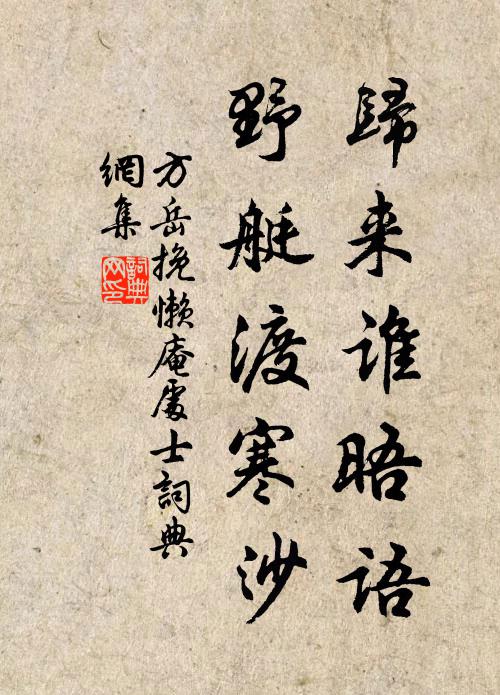 歸来谁晤语
野艇渡寒沙
方岳挽懒庵處士詞典
網集
詞典网印